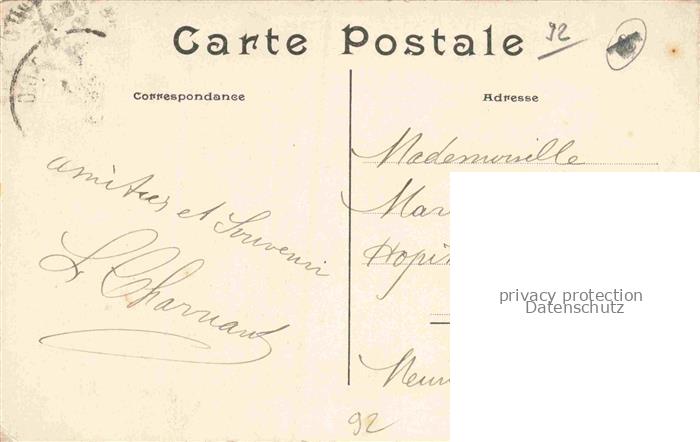 Carte Postale 92
Correspondance
Adresse
amitiés et Souvenir
Mademoiselle
Mar
Hopi
privacy protection
Datenschutz
92